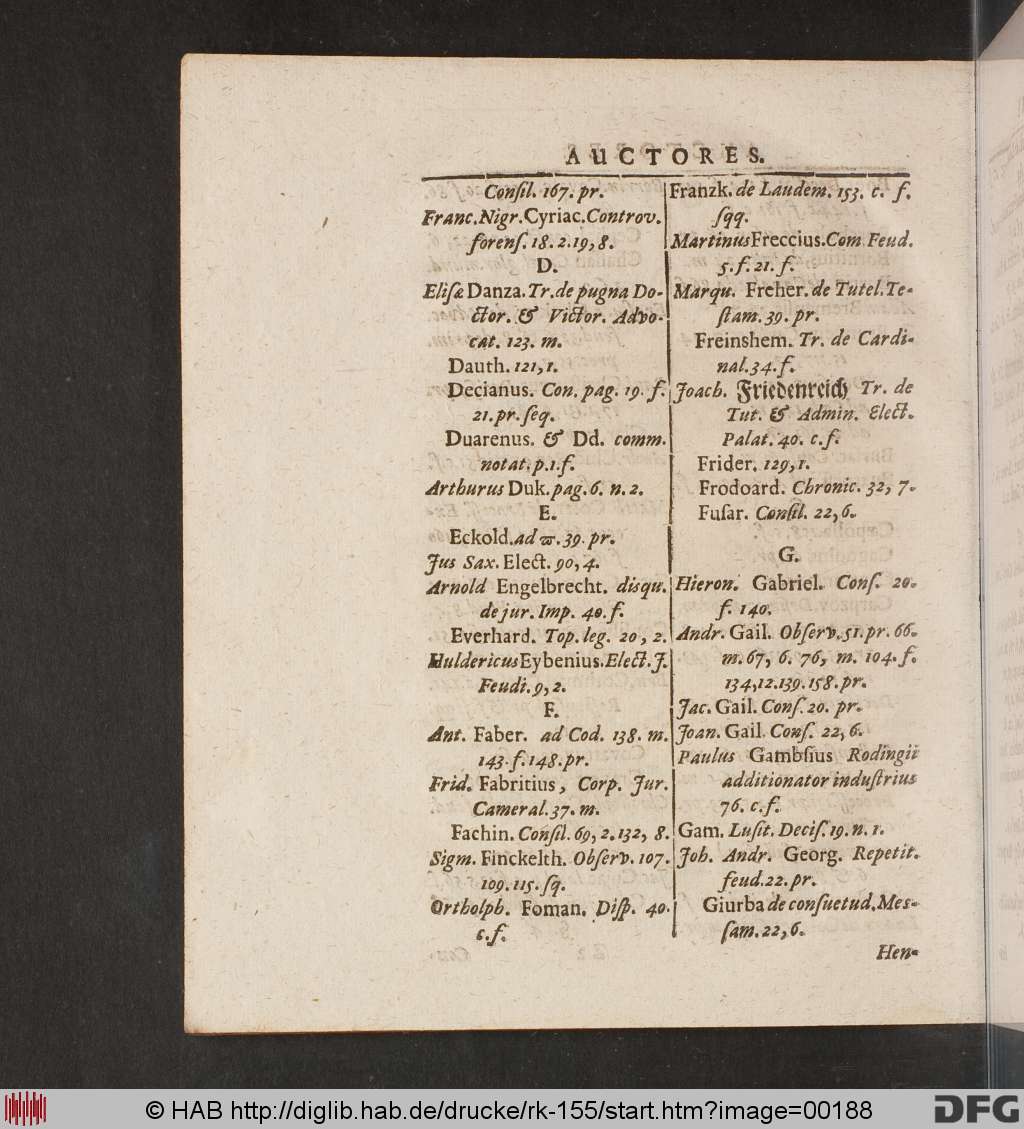 AUCTORES.
Conſil. 167. pr.
Franc. Nigr. Cyriac. Controv.
forenſ. 18. 2. 19, 8.
D.
Eliſæ Danza. Tr. de pugna Do-
ctor. & Victor. Advo-
cat. 123. m.
Dauth. 121, 1.
Decianus. Con. pag. 19. f.
21. pr. ſeq.
Duarenus. & Dd. comm.
notat. p. 1. f.
Arthurus Duk. pag. 6. n. 2.
E.
Eckold. ad ϖ. 39. pr.
Jus Sax. Elect. 90, 4.
Arnold Engelbrecht. disqu.
de jur. Imp. 40. f.
Everhard. Top. leg. 20, 2.
Huldericus Eybenius. Elect. J.
Feudi. 9, 2.
F.
Ant. Faber. ad Cod. 138. m.
143. f. 148. pr.
Frid. Fabritius, Corp. Jur.
Cameral. 37. m.
Fachin. Conſil. 69, 2. 132, 8.
Sigm. Finckelth. Obſerv. 107.
109. 115. ſq.
Ortholph. Foman. Diſp. 40.
c. f.
Franzk. de Laudem. 153. c. f.
ſqq.
Martinus Freccius. Com Feud.
5. f. 21. f.
Marqu. Freher. de Tutel. Te-
ſtam. 39. pr.
Freinshem. Tr. de Cardi-
nal. 34. f.
Joach. Friedenreich Tr. de
Tut. & Admin. Elect.
Palat. 40. c. f.
Frider. 129, 1.
Frodoard. Chronic. 32, 7.
Fuſar. Conſil. 22, 6.
G.
Hieron. Gabriel. Conſ. 20.
f. 140.
Andr. Gail. Obſerv. 51. pr. 66.
m. 67, 6. 76, m. 104. f.
134, 12. 139. 158. pr.
Jac. Gail. Conſ. 20. pr.
Joan. Gail. Conſ. 22, 6.
Paulus Gambſius Rodingii
additionator induſtrius
76. c. f.
Gam. Luſit. Deciſ. 19. n. 1.
Joh. Andr. Georg. Repetit.
feud. 22. pr.
Giurba de conſuetud. Meſ-
ſam. 22, 6.
Hen-
© HAB http://diglib.hab.de/drucke/rk-155/start.htm?image=00188
DFG